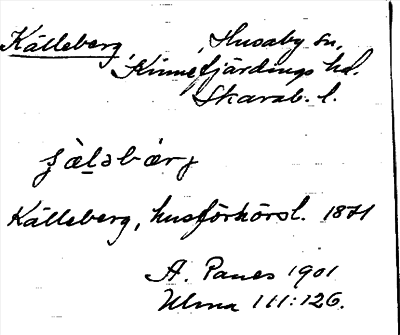 Källeberg, Husaby sn,
Kinnefjärdings hd.
Skarab. l.
Källeberg, husförhörsl. 1871
A. 1901
Ulma 111:126.